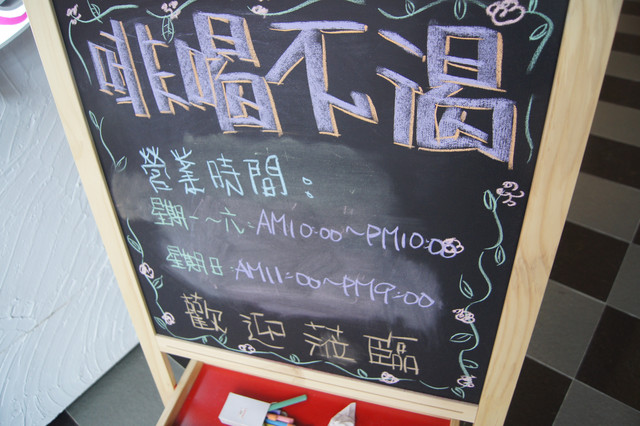 啡喝不渴
營業時間：
星期一~六：AM10:00~PM10:00
星期日：AM11:00~PM9:00
歡迎蒞臨